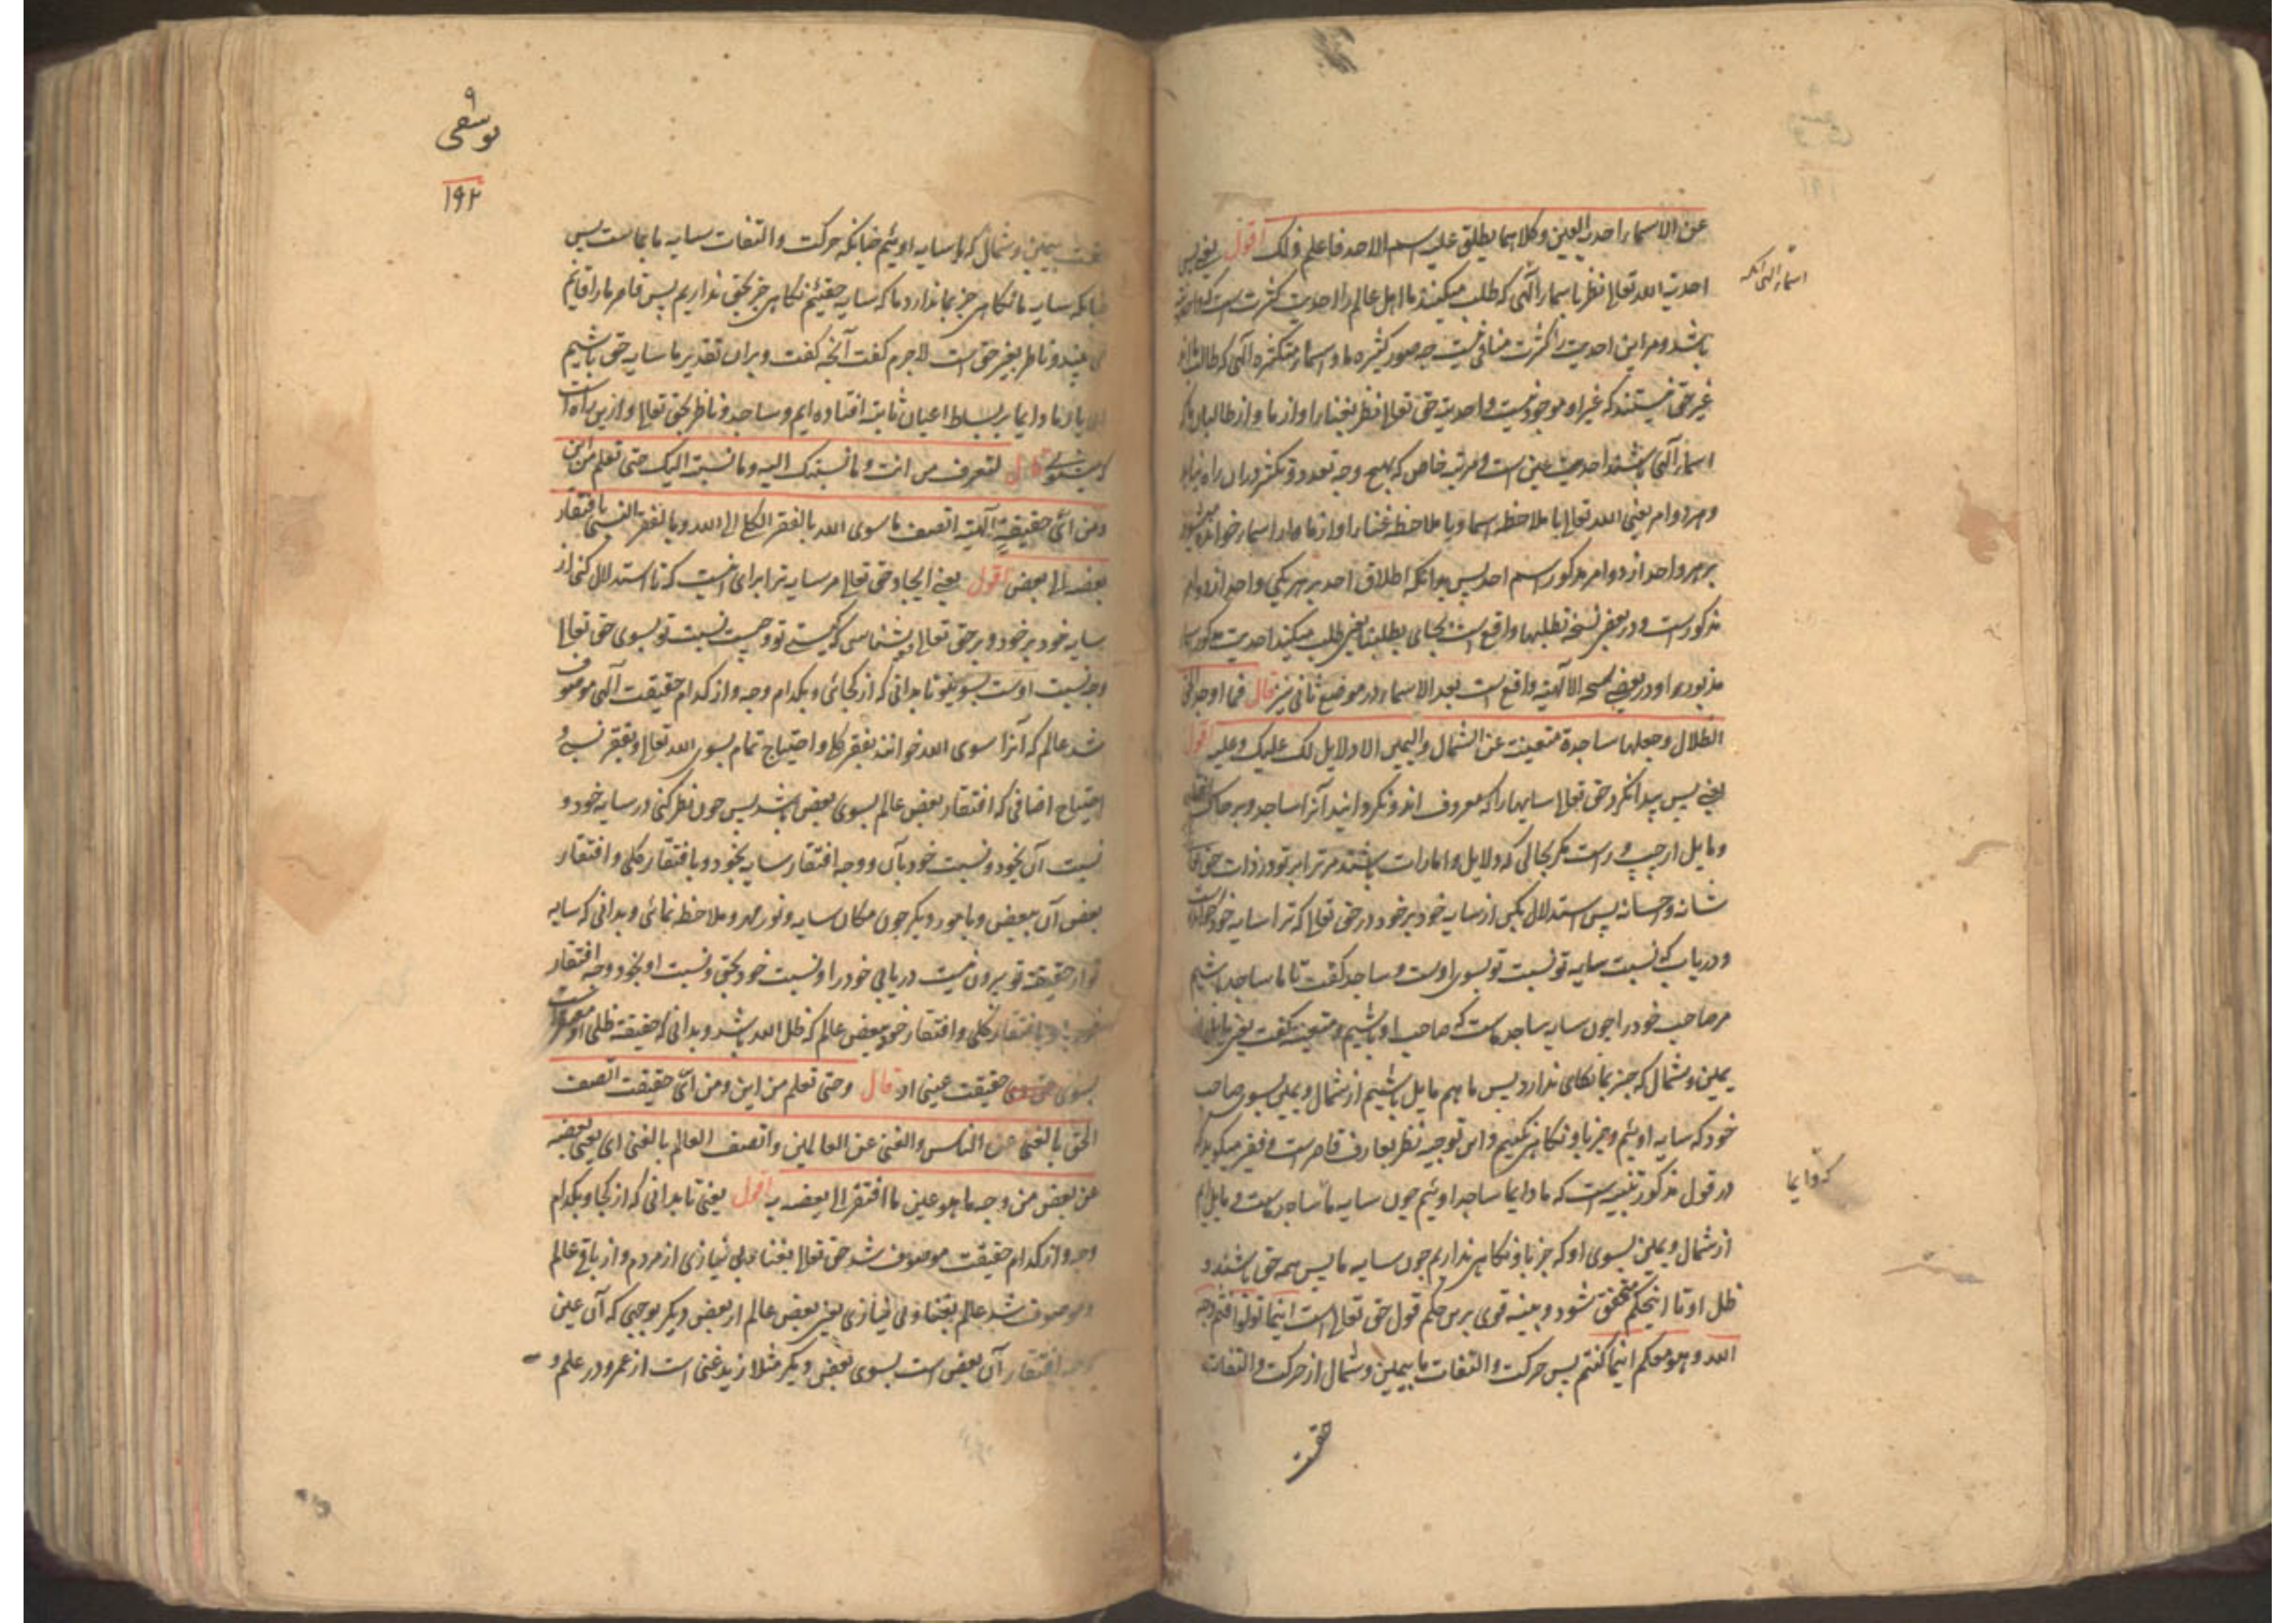 عن الاسماء احدیة العین وکلاهما یطلق علیه اسم الاحد فاعلم ذلک اقول یعنی پس
احدیت الله تعالی نظر باسماء آلهی که طلب میکنند ما اهل عالم را احدیت کثرت است که
اسماء الهی آنکه
باشد و مر این احدیت را کثرت منافی نیست چه صور کثیره ما و اسماء متکثره آلهی که طالب ما اند
غیر حق نیستند که غیر او موجود نیست و احدیت حق تعالی نظر بغنا او از ما و از طالبان که
اسماء آلهی باشند احدیت عین است و مرتبه خاص که بهیچ وجه تعدد و تکثر در ان راه نیابد
و هر دو ام یعنی الله تعالی با ملاحظه اسما و با ملاحظه غنا او از ما و از اسماء خوانده میشود
بر هر واحد از دو امر مذکور اسم احد پس بدانکه اطلاق احد بر هر یکی واحد از دو امر
مذکور است و در بعضی نسخه تطلبها واقع است بجای یطلبنا یعنی طلب میکند احدیت مذکور
مذبوره او در بعضی نسخه الآلهیة واقع است بعد الاسماء در موضع ثانی نیز قال فما اوجد الحق
الظلال وجعلها ساجدة متفیئة عن الشمال والیمین الا دلایل لک علیک وعلیه اقول
یعنی پس پیدا نکرد حق تعالی سایها را که معروف اند و نگردانید آنرا ساجد و بر خاک
و مایل از چپ و راست مگر بحالی که دلایل و امارات باشند مر ترا بر تو و ذات حق تعالی
شانه و احسانه پس استدلال بکن از سایه خود بر خود و در حق تعالی که ترا سایه خود
و دریاب که نسبت سایه تو نسبت تو بسوی اوست و ساجد گفت تا ما ساجد باشیم
مر صاحب خود را چون سایه ساجد ماست که صاحب او باشیم و متفیئه گفت یعنی مایل از
یمین و شمال که جز بما نگاهی ندارد پس ما هم مایل باشیم از شمال و یمین بسوی صاحب
خود که سایه اوئیم و جز باو نگاهی نکنیم و این توجیه نظر بعارف قاصر است و فقیر میگوید که
در قول مذکور تنبیه است که ما دایما ساجد اوئیم چون سایه ما ساجد ماست و مایل ایم
که دایما
از شمال و یمین بسوی او که جز باو نگاهی نداریم چون سایه ما پس همه حق باشند و
ظل او تا اینحکم متحقق شود و بینه قوی برین حکم قول حق تعالی است اینما تولوا فثم وجه
الله و هو معکم اینما کنتم پس حرکت و التفات ما بیمین و شمال از حرکت و التفات
حقست
۹
یوسفی
۱۹۲
حقست بیمین و شمال که ما سایه اوئیم چنانکه حرکت و التفات سایه ما بماست پس
چنانکه سایه ما نگاهی جز بما ندارد ما که سایه حقیم نگاهی جز بحق نداریم پس قاصر ما را قایم
می بیند و ناظر بغیر حق است لاجرم گفت آنچه گفت و بران تقدیر ما سایه حق باشیم
و ما دایما بر بساط اعیان ثابته افتاده ایم و ساجد و ناظر بحق تعالی و ازین راه است
قال لتعرف من انت وما نسبتک الیه وما نسبته الیک حتی تعلم من این
ومن ای حقیقة آلهیة اتصف ما سوی الله بالفقر الکلی الی الله وبالفقر النسبی بافتقار
بعضه الی بعض اقول یعنی ایجاد حق تعالی مر سایه ترا برای انست که تا استدلال کنی از
سایه خود بر خود و بر حق تعالی و بشناسی که کیستی تو و چیست نسبت تو بسوی حق تعالی
و چه نسبت اوست بسوی تو تا بدانی که از کجائی و بکدام وجه و از کدام حقیقت آلهی موصوف
شد عالم که آنرا سوی الله خوانند بفقر کلی و احتیاج تمام بسوی الله تعالی و بفقر نسبی و
احتیاج اضافی که افتقار بعض عالم بسوی بعض باشد پس چون نظر کنی در سایه خود و
نسبت آن بخود و نسبت خود بآن و وجه افتقار سایه بخود و با افتقار کلی و افتقار
بعض آن ببعض و بامور دیگر چون مکان سایه و نور مهر و ملاحظه نمائی و بدانی که سایه
تو از حقیقة تو بیرون نیست دریابی خود را و نسبت خود بحق و نسبت او بخود و وجه افتقار
خود باو با افتقار کلی و افتقار خود ببعض عالم که ظل الله باشد و بدانی که حقیقة ظلی او
بسوی حقیقت عینی او قال وحتی تعلم من این ومن ای حقیقت اتصف
الحق بالغنی عن الناس والغنی عن العالمین واتصف العالم بالغنی ای یعنی بعضه
عن بعض من وجه ما هو عین ما افتقر الی بعضه به اقول یعنی تا بدانی که از کجا و بکدام
وجه و از کدام حقیقت موصوف شد حق تعالی بغنا و بی نیازی از مردم و از باقی عالم
و موصوف شد عالم بغنا و بی نیازی یعنی بعض عالم از بعض دیگر بوجهی که آن عین
وجه افتقار آن بعض است بسوی بعض دیگر مثلا زید غنی است از عمرو در علم و